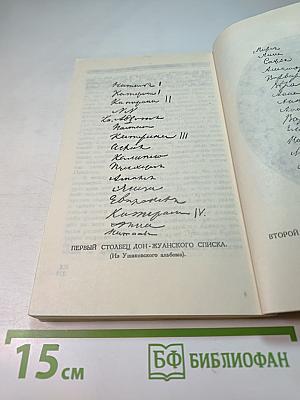 Наталья I
Катерина I
Катерина II
NN
Кн. Авдотия
Настасья
Катерина III
Аглая
Калипсо
Пулхерия
Амалия
Элиза
Евпраксея
Катерина IV.
Анна
Наталья
ПЕРВЫЙ СТОЛБЕЦ ДОН-ЖУАНСКОГО СПИСКА.
(Из Ушаковского альбома).
Мария
Анна
Софья
Александра
Варвара
Вера
Анна
Анна
Анна
ВТОРОЙ
15 см
БФ БИБЛИОФАН